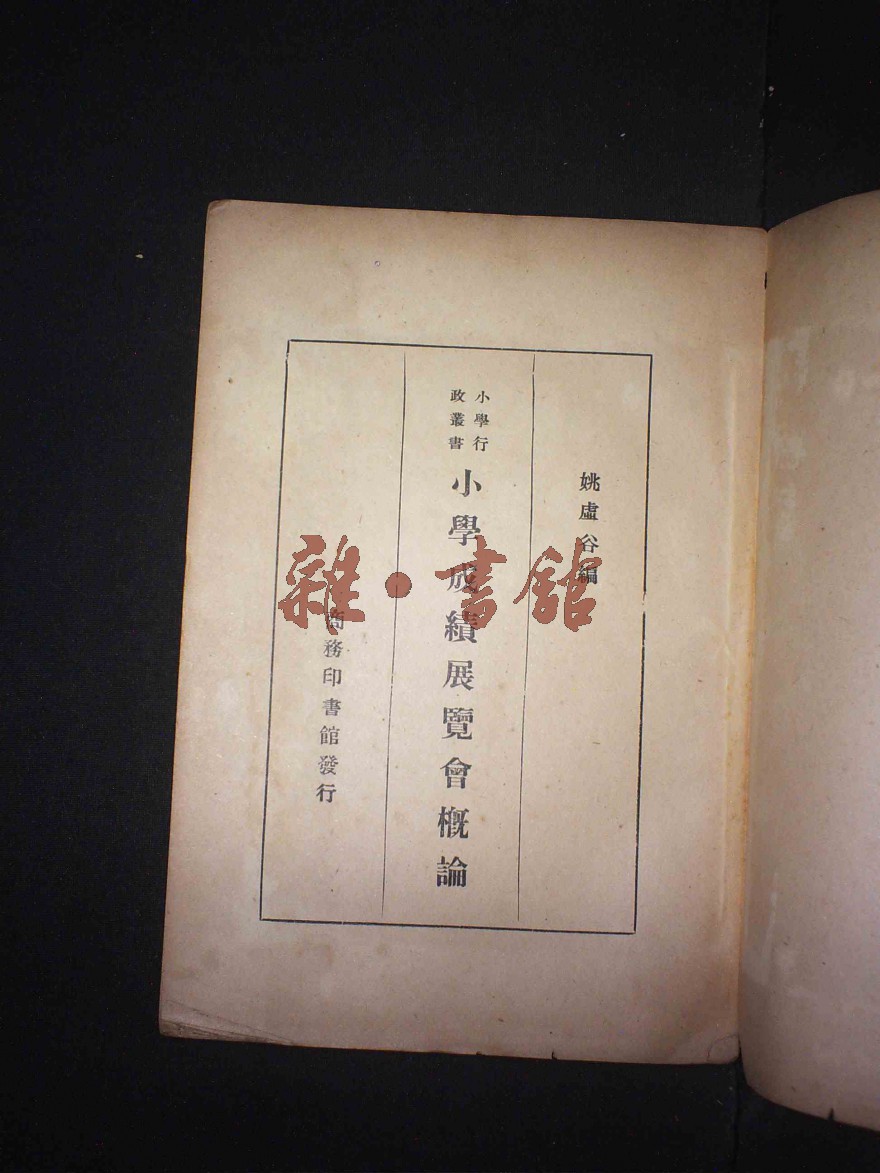 姚虛谷編
小學行
政叢書
小學成績展覽會概論
商務印書館發行
雜·書館